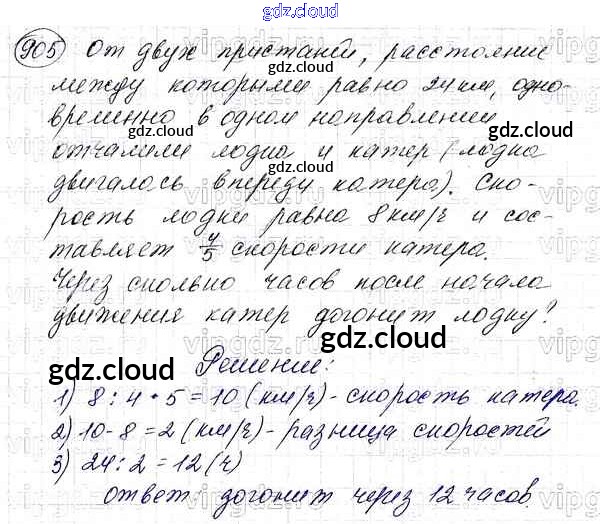 gdz.cloud
905 От двух пристаней, расстояние
между которыми равно 24 км, одно-
временно в одном направлении
отчалили лодка и катер (лодка
двигалась впереди катера). Ско-
рость лодки равна 8 км/ч и сос-
тавляет 4/5 скорости катера.
Через сколько часов после начала
движения катер догонит лодку?
Решение:
1) 8 : 4 · 5 = 10 (км/ч) - скорость катера.
2) 10 - 8 = 2 (км/ч) - разница скоростей
3) 24 : 2 = 12 (ч)
Ответ догонит через 12 часов.